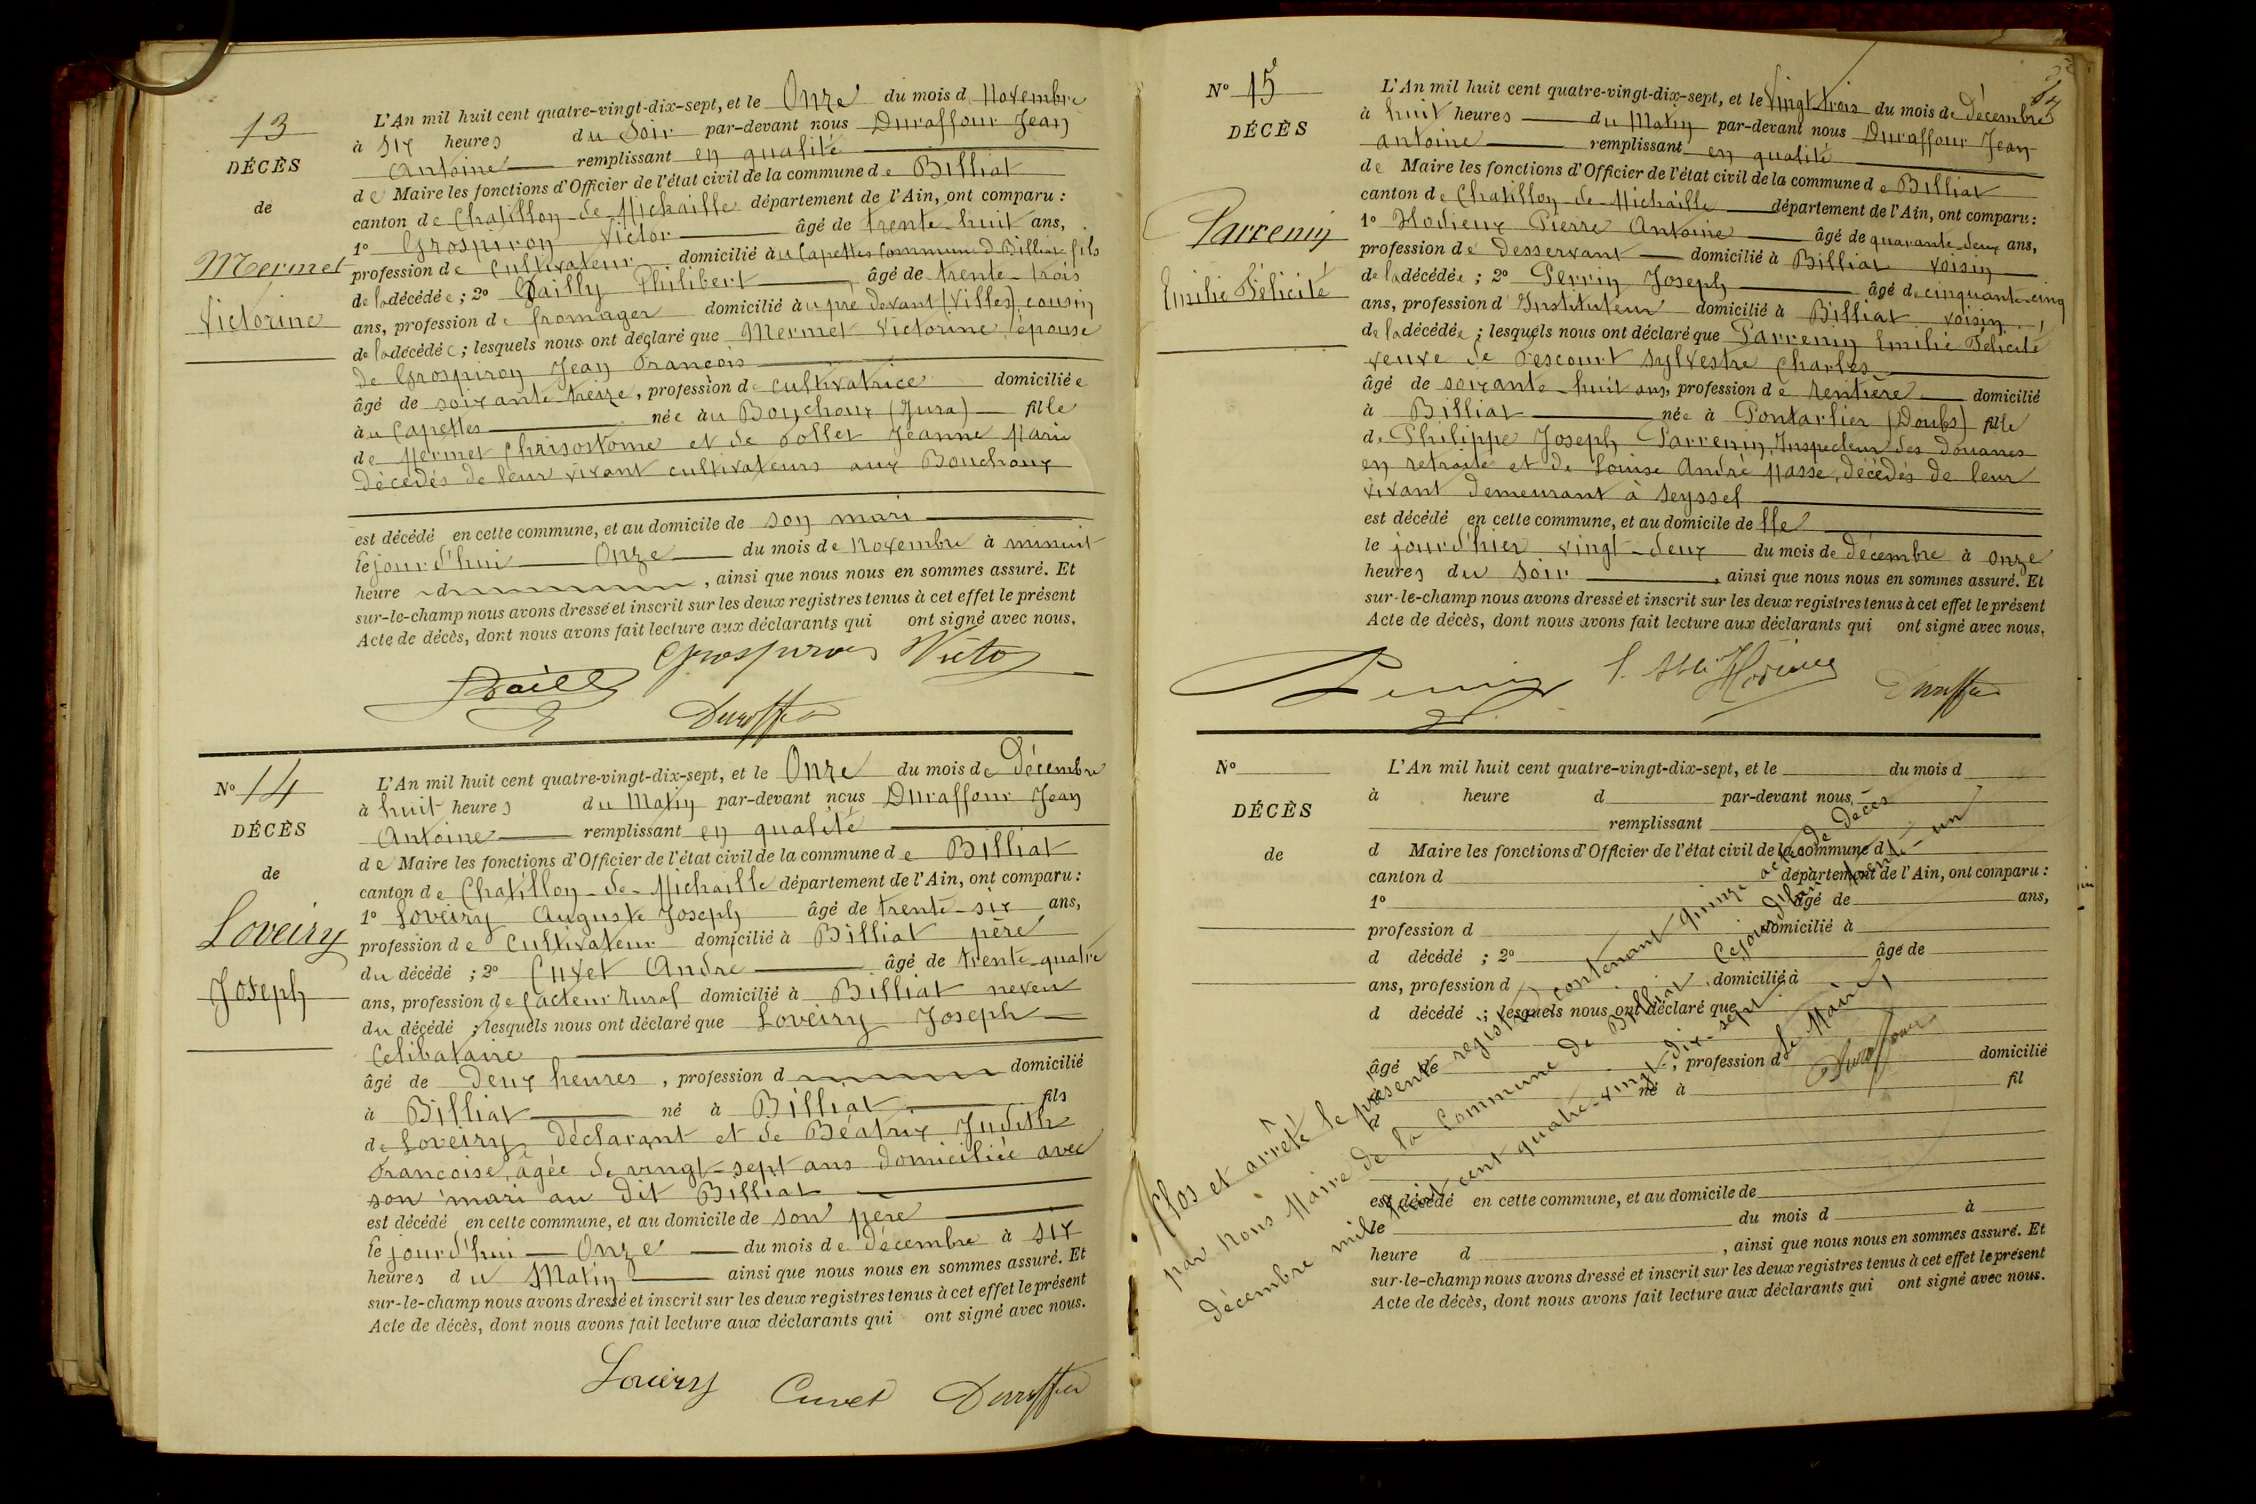 13
DÉCÈS
de
Mermet
Victorine
L'An mil huit cent quatre-vingt-dix-sept, et le Onze du mois d Novembre
à six heures du Soir par-devant nous Duraffour Jean
Antoine remplissant en qualité
de Maire les fonctions d'Officier de l'état civil de la commune de Billiat
canton de Chatillon-de-Michaille département de l'Ain, ont comparu :
1° Grospiron Victor âgé de trente-huit ans,
profession de cultivateur domicilié au Capettes commune d Billiat fils
de la décédée ; 2° Dailly Philibert âgé de trente-trois
ans, profession de fromager domicilié au pré devant (Villes) cousin
de la décédée ; lesquels nous ont déclaré que Mermet Victorine épouse
de Grospiron Jean François
âgé de soixante-treize, profession de cultivatrice domiciliée
au Capettes née au Bouchoux (Jura) fille
de Mermet Chrisostome et de Jeanne Marie
décédés de leur vivant cultivateurs aux Bouchoux
est décédé en cette commune, et au domicile de son mari
le jourd'hui Onze du mois de Novembre à minuit
heure d , ainsi que nous nous en sommes assuré. Et
sur-le-champ nous avons dressé et inscrit sur les deux registres tenus à cet effet le présent
Acte de décès, dont nous avons fait lecture aux déclarants qui ont signé avec nous.
Grospiron Victor
Dailly
Duraffour
N° 14
DÉCÈS
de
Loveiry
Joseph
L'An mil huit cent quatre-vingt-dix-sept, et le Onze du mois de Décembre
à huit heures du Matin par-devant nous Duraffour Jean
Antoine remplissant en qualité
de Maire les fonctions d'Officier de l'état civil de la commune de Billiat
canton de Chatillon-de-Michaille département de l'Ain, ont comparu :
1° Loveiry Auguste Joseph âgé de trente-six ans,
profession de Cultivateur domicilié à Billiat père
du décédé ; 2° Cuvet André âgé de trente-quatre
ans, profession de facteur rural domicilié à Billiat neveu
du décédé ; lesquels nous ont déclaré que Loveiry Joseph
Celibataire
âgé de Deux heures , profession d domicilié
à Billiat né à Billiat fils
de Loveiry déclarant et de Béatrix Judith
Francoise, âgée de vingt-sept ans domiciliée avec
son mari au dit Billiat
est décédé en cette commune, et au domicile de son père
le jourd'hui Onze du mois de décembre à six
heures du Matin ainsi que nous nous en sommes assuré. Et
sur-le-champ nous avons dressé et inscrit sur les deux registres tenus à cet effet le présent
Acte de décès, dont nous avons fait lecture aux déclarants qui ont signé avec nous.
Loveiry Cuvet Duraffour
N° 15
DÉCÈS
Parrenin
Emilie Félicité
L'An mil huit cent quatre-vingt-dix-sept, et le Vingt trois du mois de Décembre
à huit heures du Matin par-devant nous Duraffour Jean
antoine remplissant en qualité
de Maire les fonctions d'Officier de l'état civil de la commune de Billiat
canton de Chatillon-de-Michaille département de l'Ain, ont comparu :
1° Hodieux Pierre Antoine âgé de quarante-deux ans,
profession de desservant domicilié à Billiat voisin
de la décédée ; 2° Perrin Joseph âgé de cinquante-cinq
ans, profession d'Instituteur domicilié à Billiat voisin
de la décédée ; lesquels nous ont déclaré que Parrenin Emilie Félicité
veuve de Sylvestre Charles
âgé de soixante-huit ans, profession de rentière domicilié
à Billiat née à Pontarlier (Doubs) fille
de Philippe Joseph Parrenin, Inspecteur des douanes
en retraite et de Louise André Masse, décédés de leur
vivant demeurant à Seyssel
est décédé en cette commune, et au domicile de
le jourd'hier vingt-deux du mois de décembre à onze
heures du Soir , ainsi que nous nous en sommes assuré. Et
sur-le-champ nous avons dressé et inscrit sur les deux registres tenus à cet effet le présent
Acte de décès, dont nous avons fait lecture aux déclarants qui ont signé avec nous.
Perrin Hodieux Duraffour
N°
DÉCÈS
de
L'An mil huit cent quatre-vingt-dix-sept, et le du mois d
à heure d par-devant nous
remplissant
d Maire les fonctions d'Officier de l'état civil de la commune d
canton d département de l'Ain, ont comparu :
1° âgé de ans,
profession d domicilié à
d décédé ; 2° âgé de
ans, profession d domicilié à
d décédé ; lesquels nous ont déclaré que
âgé de , profession d domicilié
à né à fil
d
est décédé en cette commune, et au domicile de
le du mois d à
heure d , ainsi que nous nous en sommes assuré. Et
sur-le-champ nous avons dressé et inscrit sur les deux registres tenus à cet effet le présent
Acte de décès, dont nous avons fait lecture aux déclarants qui ont signé avec nous.
Clos et arrêté le présente registre contenant quinze actes de décès
par Nous Maire de la Commune de Billiat Cejourd'hui trente-un
décembre mil huit cent quatre-vingt-dix-sept.
Le Maire,
Duraffour